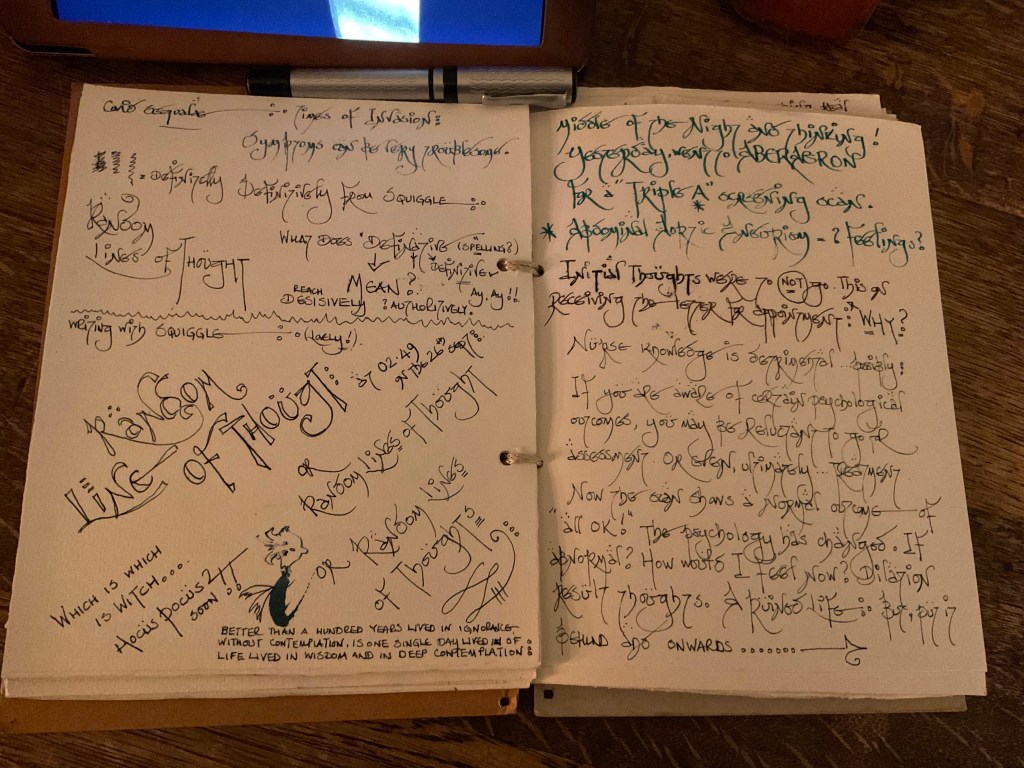 Covid sequalæ Times of Invasion:
Symptoms can be very troublesome.
= Definitely Definitively From Squiggle
Random
Lines of Thought
What does "Definative (spelling?)
Definitive
Mean? Ay, Ay!!
Reach
Desisively ? Authoritively.
Writing with Squiggle (lovely!).
Random
Line of Thought: at 02:49
on the 26th Sept:.
or
Random Lines of Thought
or Random Lines
of Thoughts
Which is which
is witch...
Hocus Pocus 2
soon!!
Better than a hundred years lived in ignorance,
without contemplation, is one single day lived in of
life lived in wisdom and in deep contemplation:
Middle of the Night and thinking!
Yesterday, went to Aberaeron
for a "Triple A" screening scan.
*
* Abdominal Aortic Aneurism - ? Feelings?
Initial Thoughts were to NOT go. This on
receiving the letter for appointment: Why?
Nurse knowledge is detrimental ... possibly:
If you are aware of certain psychological
outcomes, you may be reluctant to go for
assessment. Or even, ultimately ... treatment
Now the scan shows a normal outcome of
"all OK!" The psychology has changed. If
abnormal? How would I feel now? Dilation
result thoughts. A ruined life: But, put it
behind and onwards ........